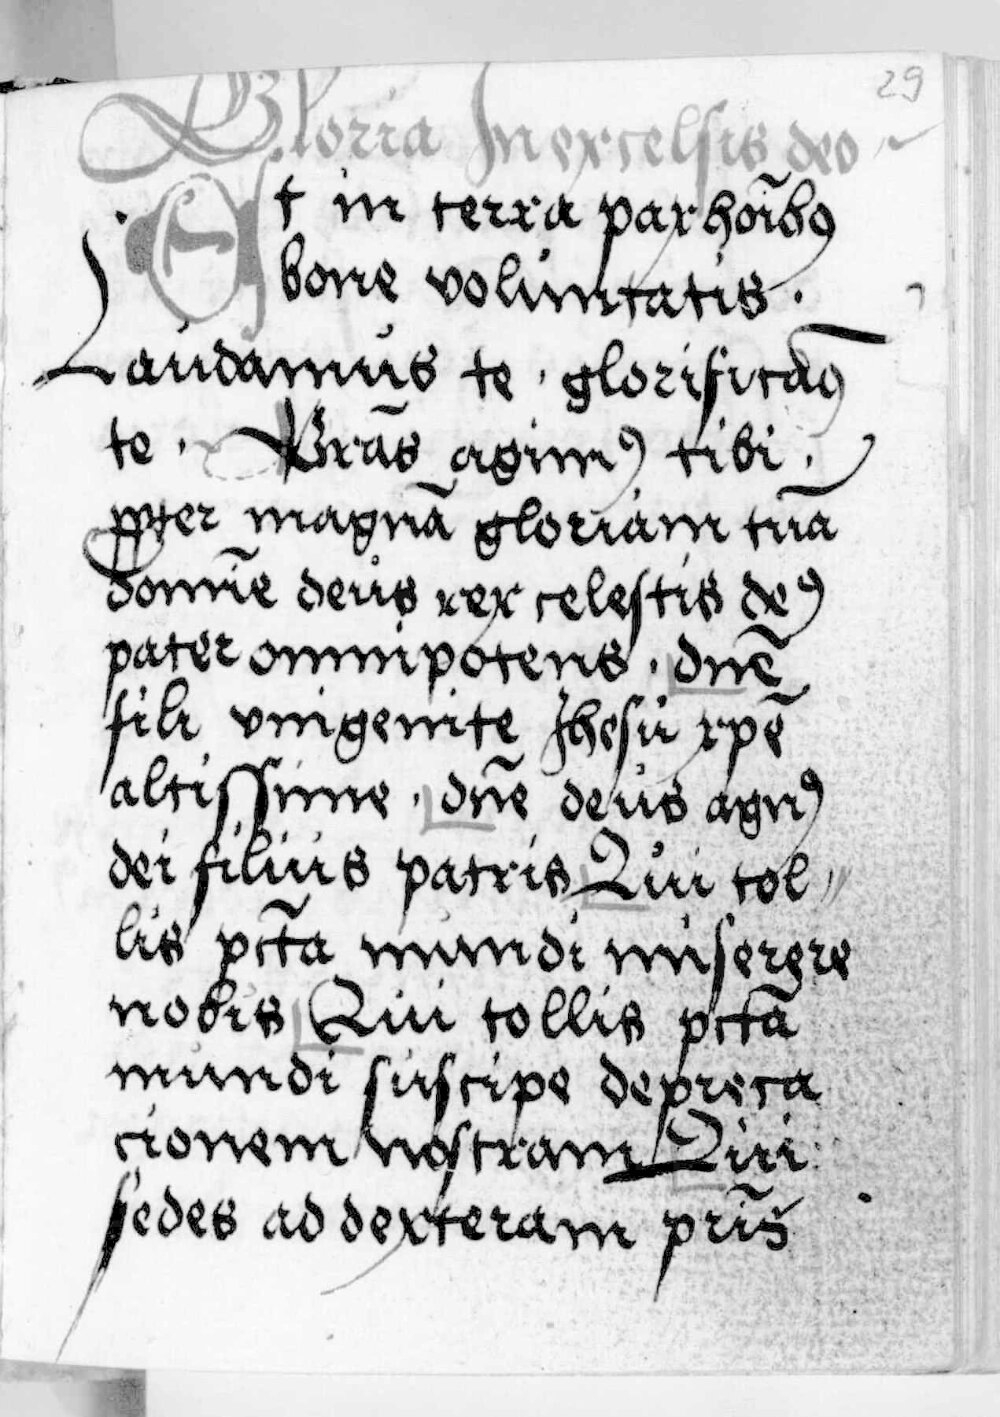 29
Gloria In excelsis deo
Et in terra pax hoı̄bꝯ
bone voluntatis .
Laudamus te . glorificāꝯ
te . Grās agimꝯ tibi .
ꝓpter magnā gloriam tuā
domīe deus rex celestis deꝯ
pater omnipotens . dnē
fili vnigenite Ihesu xpē
altissime . dn̄e deus agnꝯ
dei filius patris Qui tol〃
lis pctā mundi miserere
nobis Qui tollis pctā
mundi suscipe depreca
cionem nostram Qui
sedes ad dexteram prīs